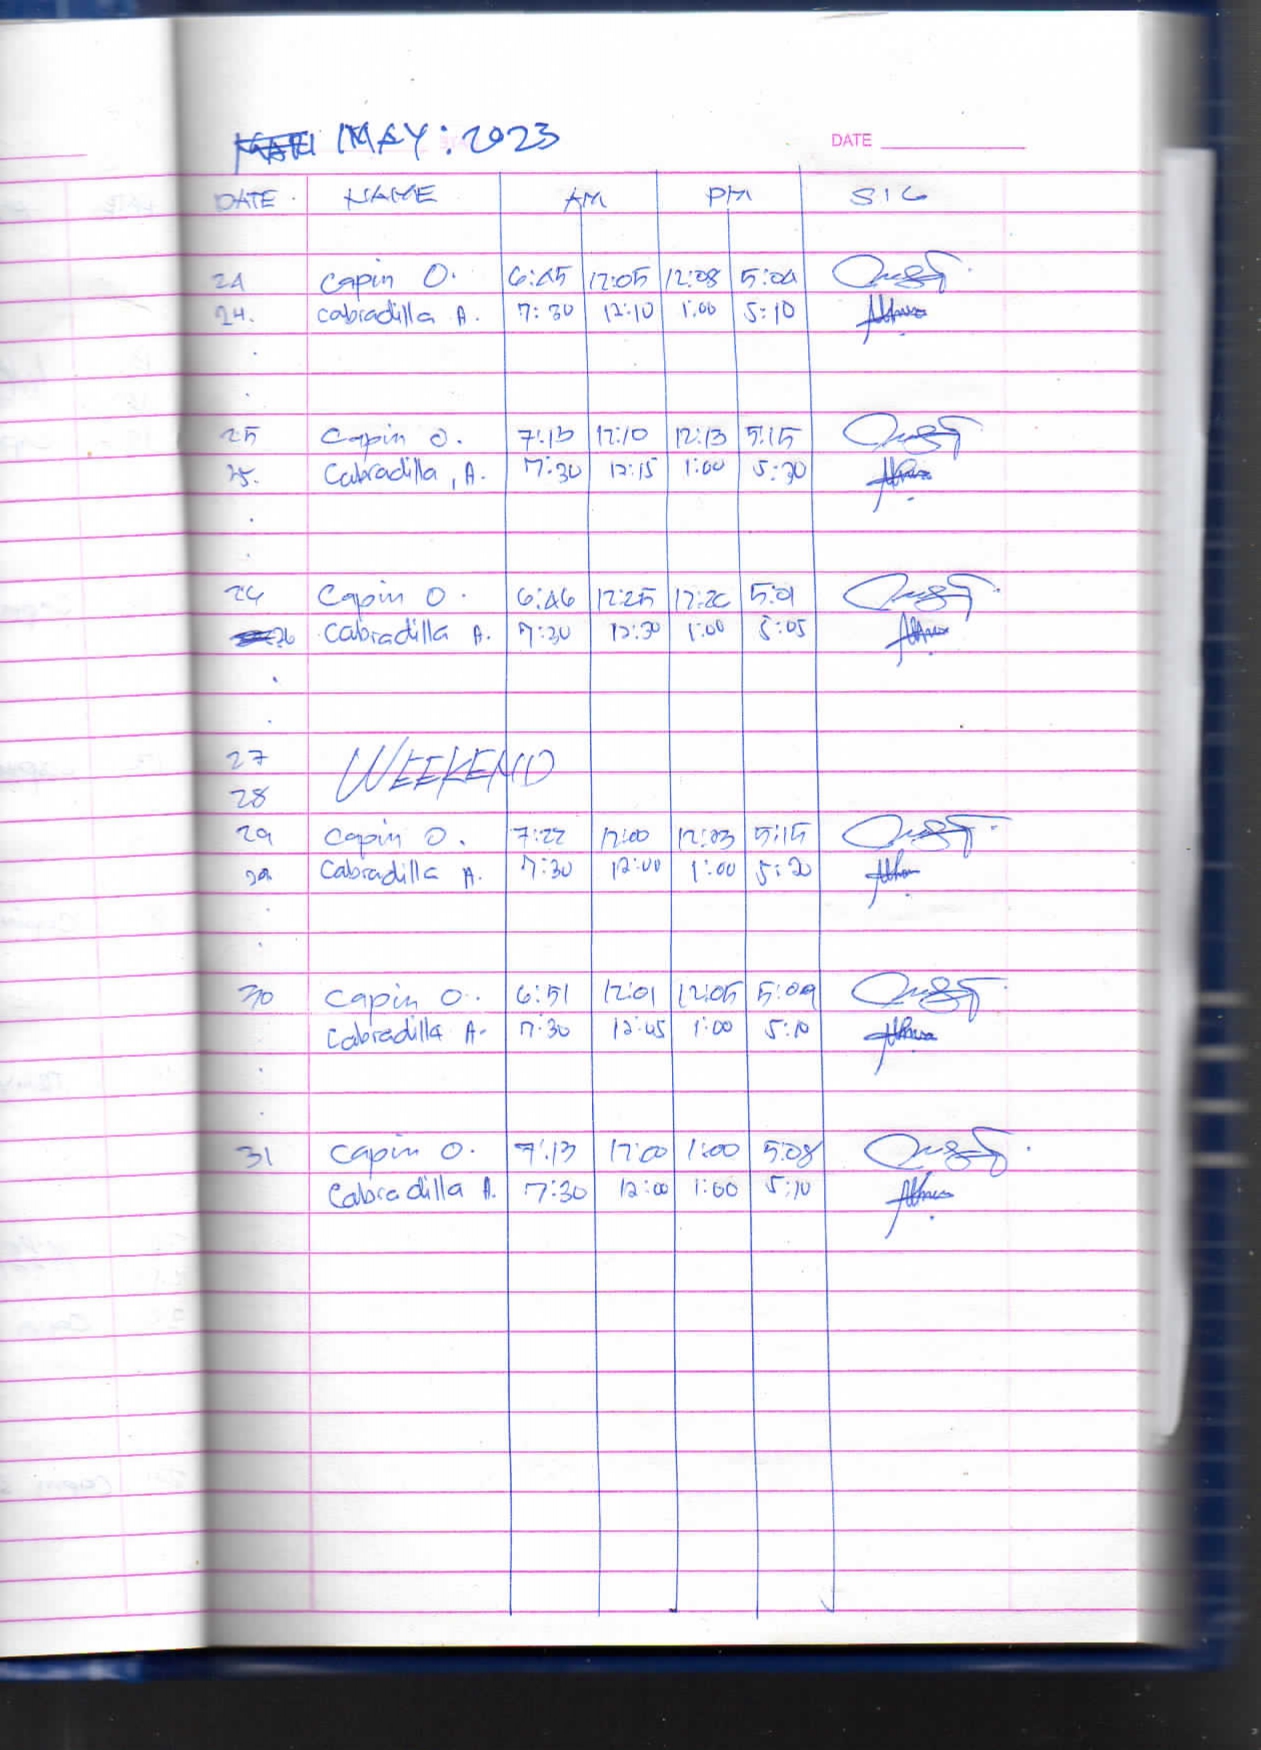 MAY: 2023
DATE
DATE. NAME AM PM SIG
24 Capin O. 6:45 12:05 12:08 5:04
24. Cabradilla A. 7:30 12:10 1:00 5:10
25 Capin O. 7:13 12:10 12:13 5:15
25. Cabradilla, A. 7:30 12:15 1:00 5:30
26 Capin O. 6:46 12:25 12:26 5:01
26 Cabradilla A. 7:30 12:30 1:00 5:05
27 WEEKEND
28
29 Capin O. 7:22 12:00 12:03 5:15
29 Cabradilla A. 7:30 12:00 1:00 5:20
30 Capin O. 6:51 12:01 12:05 5:09
Cabradilla A. 7:30 12:05 1:00 5:10
31 Capin O. 7:13 12:00 1:00 5:08
Cabradilla A. 7:30 12:00 1:00 5:10